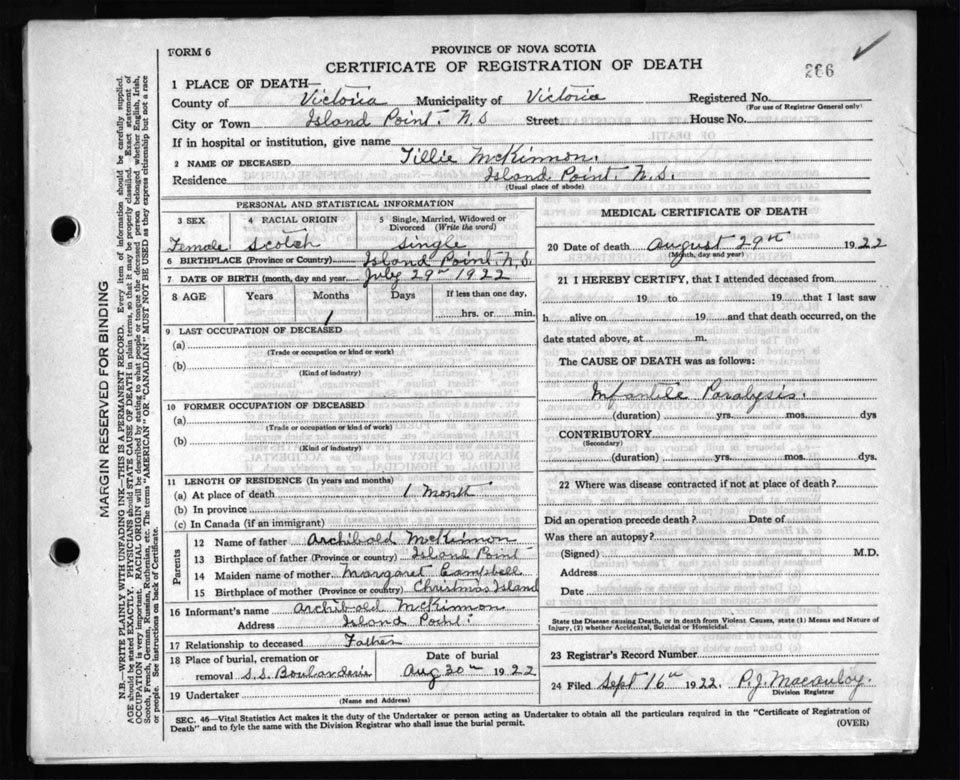 FORM 6
PROVINCE OF NOVA SCOTIA
CERTIFICATE OF REGISTRATION OF DEATH
286
1 PLACE OF DEATH—
County of Victoria Municipality of Victoria Registered No.
(For use of Registrar General only)
City or Town Island Point. N.S Street House No.
If in hospital or institution, give name
2 NAME OF DECEASED Tillie McKinnon.
Residence Island Point N.S.
(Usual place of abode)
PERSONAL AND STATISTICAL INFORMATION
3 SEX 4 RACIAL ORIGIN 5 Single, Married, Widowed or Divorced (Write the word)
Female Scotch Single
6 BIRTHPLACE (Province or Country) Island Point. N.S.
7 DATE OF BIRTH (month, day and year) July 29th 1922
8 AGE Years Months Days If less than one day,
1 hrs. or min.
9 LAST OCCUPATION OF DECEASED
(a)
(Trade or occupation or kind or work)
(b)
(Kind of industry)
10 FORMER OCCUPATION OF DECEASED
(a)
(Trade or occupation or kind of work)
(b)
(Kind of industry)
11 LENGTH OF RESIDENCE (In years and months)
(a) At place of death 1 Month
(b) In province
(c) In Canada (if an immigrant)
Parents
12 Name of father Archibald McKinnon
13 Birthplace of father (Province or country) Island Point
14 Maiden name of mother Margaret Campbell
15 Birthplace of mother (Province or country) Christmas Island
16 Informant's name Archibald McKinnon
Address Island Point.
17 Relationship to deceased Father
18 Place of burial, cremation or removal S.S. Date of burial Aug 30th 1922
19 Undertaker
(Name and Address)
MEDICAL CERTIFICATE OF DEATH
20 Date of death August 29th 1922
(Month, day and year)
21 I HEREBY CERTIFY, that I attended deceased from
19 to 19 that I last saw
h alive on 19 and that death occurred, on the
date stated above, at m.
The CAUSE OF DEATH was as follows:
Infantile Paralysis.
(duration) yrs. mos. dys
CONTRIBUTORY
(Secondary)
(duration) yrs. mos. dys.
22 Where was disease contracted if not at place of death?
Did an operation precede death? Date of
Was there an autopsy?
(Signed) M.D.
Address
Date
State the Disease causing Death, or in death from Violent Causes, state (1) Means and Nature of
Injury, (2) whether Accidental, Suicidal or Homicidal.
23 Registrar's Record Number
24 Filed Sept 16th 1922. P.J. Macaulay.
Division Registrar
SEC. 46—Vital Statistics Act makes it the duty of the Undertaker or person acting as Undertaker to obtain all the particulars required in the "Certificate of Registration of
Death" and to fyle the same with the Division Registrar who shall issue the burial permit. (OVER)
MARGIN RESERVED FOR BINDING
N.B.—WRITE PLAINLY WITH UNFADING INK—THIS IS A PERMANENT RECORD. Every item of information should be carefully supplied.
AGE should be stated EXACTLY. PHYSICIANS should STATE CAUSE OF DEATH in plain terms, so that it may be properly classified. Exact statement of
OCCUPATION is very important. RACIAL ORIGIN will be described by stating to what people or tongue the deceased person belonged whether English, Irish,
Scotch, French, German, Russian, Ruthenian, etc. The terms "AMERICAN" OR "CANADIAN" MUST NOT BE USED as they express citizenship but not a race
or people. See instructions on back of Certificate.